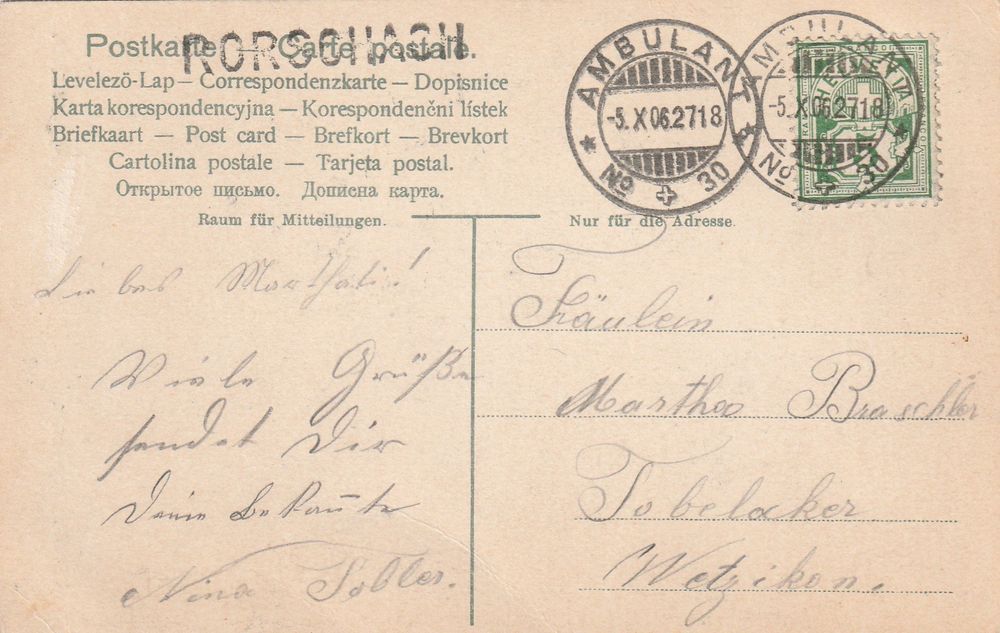 Postkarte — Carte postale.
RORSCHACH
Levelező-Lap — Correspondenzkarte — Dopisnice
Karta korespondencyjna — Korespondenční lístek
Briefkaart — Post card — Brefkort — Brevkort
Cartolina postale — Tarjeta postal.
Открытое письмо. Дописна карта.
AMBULANT
-5.X.06.2718
No 30
AMBULANT
-5.X.06.2718
No 30
HELVETIA
Raum für Mitteilungen.
Nur für die Adresse.
Liebes Marthali!
Viele Grüße
sendet Dir
Deine Bekannte
Nina Tobler.
Fräulein
Martha Braschler
Tobelaker
Wetzikon.